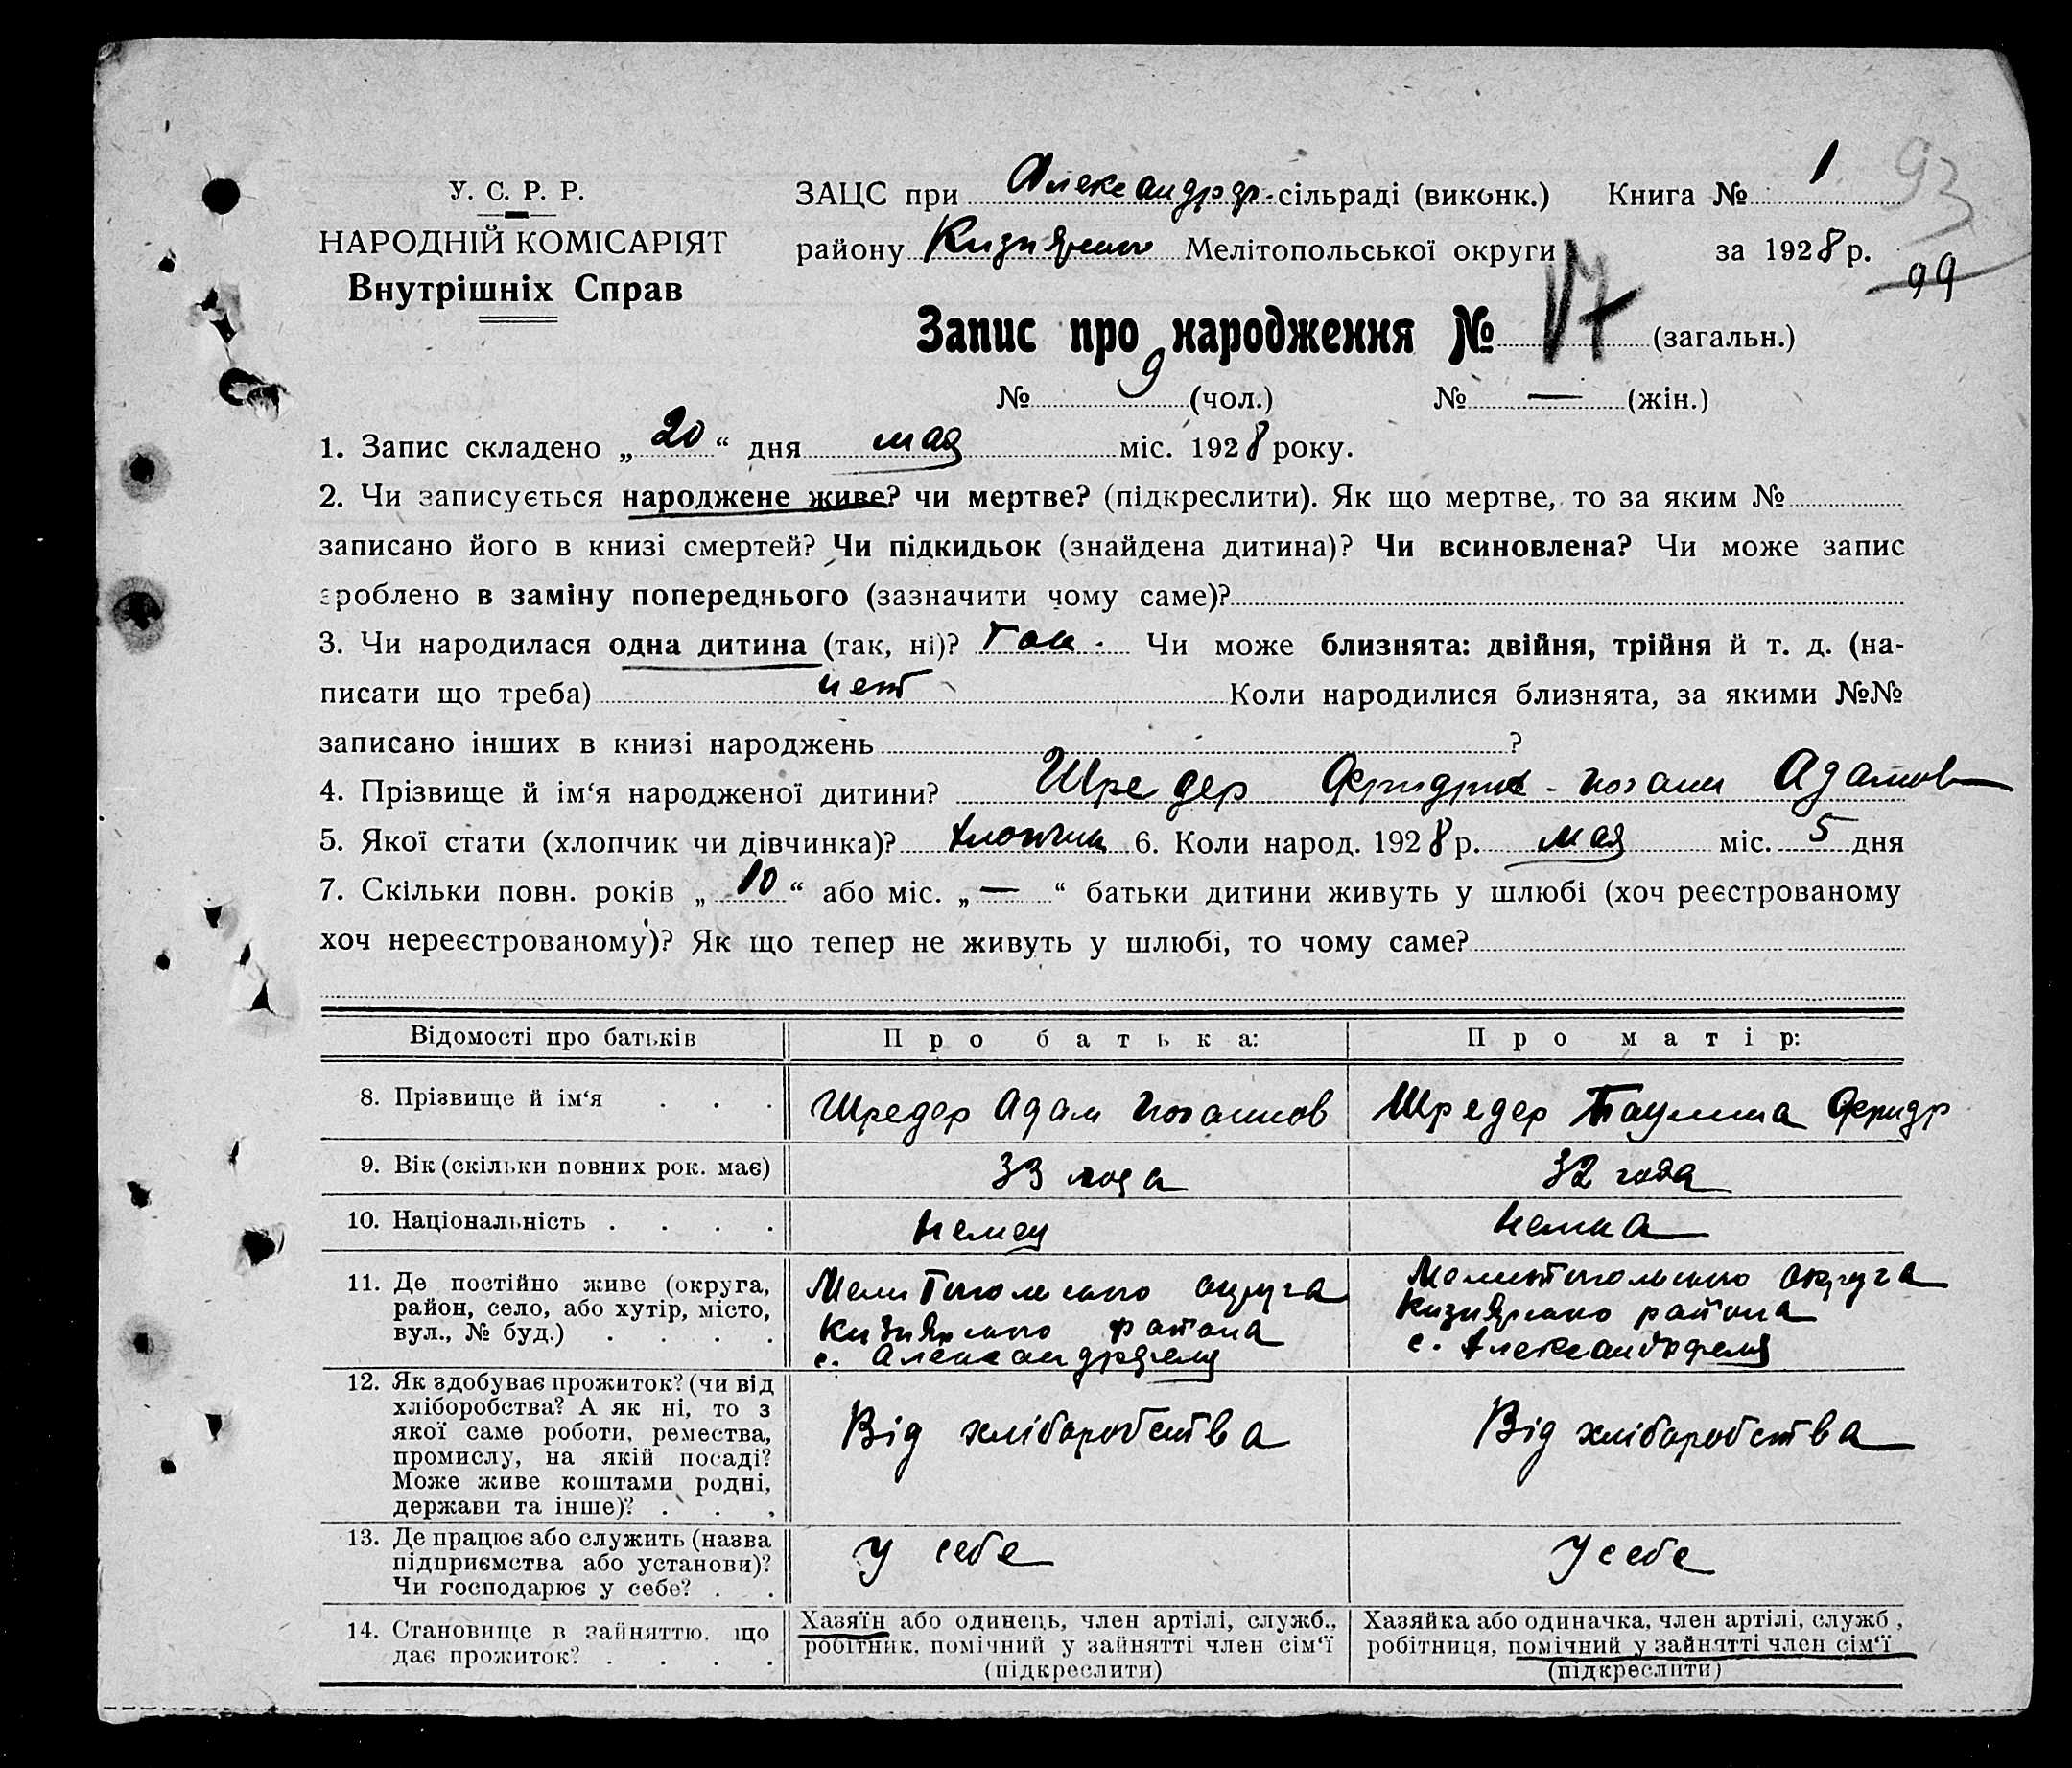 У. С. Р. Р.
НАРОДНІЙ КОМІСАРІЯТ
Внутрішніх Справ
ЗАЦС при Александрф. сільраді (виконк.) Книга № 1
93
району Кизиярского Мелітопольської округи за 1928 р.
99
Запис про народження № 17 (загальн.)
№ 9 (чол.) № — (жін.)
1. Запис складено „20“ дня мая міс. 1928 року.
2. Чи записується народжене живе? чи мертве? (підкреслити). Як що мертве, то за яким №
записано його в книзі смертей? Чи підкидьок (знайдена дитина)? Чи всиновлена? Чи може запис
зроблено в заміну попереднього (зазначити чому саме)?
3. Чи народилася одна дитина (так, ні)? Так. Чи може близнята: двійня, трійня й т. д. (на-
писати що треба) нет Коли народилися близнята, за якими №№
записано інших в книзі народжень ?
4. Прізвище й ім‘я народженої дитини? Шредер Фридрих - Иоган Адамов
5. Якої стати (хлопчик чи дівчинка)? хлопчик 6. Коли народ. 1928 р. мая міс. 5 дня
7. Скільки повн. років „10“ або міс. „—“ батьки дитини живуть у шлюбі (хоч реєстрованому
хоч нереєстрованому)? Як що тепер не живуть у шлюбі, то чому саме?
Відомості про батьків Про батька: Про матір:
8. Прізвище й ім‘я . . . Шредер Адам Иоганнов Шредер Фридр
9. Вік (скільки повних рок. має) 33 года 32 года
10. Національність . . . . Немец Немка
11. Де постійно живе (округа,
район, село, або хутір, місто,
вул., № буд.) . . . .
Мелитопольского округа
Кизиярского района
с. Александрфельд
Мелитопольского округа
Кизиярского района
с. Александрфельд
12. Як здобуває прожиток? (чи від
хліборобства? А як ні, то з
якої саме роботи, ремества,
промислу, на якій посаді?
Може живе коштами родні,
держави та інше)? . . .
Від хліборобства
Від хліборобства
13. Де працює або служить (назва
підприємства або установи)?
Чи господарює у себе? . .
У себе
У себе
14. Становище в зайняттю, що
дає прожиток? . . . .
Хазяїн або одинець, член артілі, служб.,
робітник, помічний у зайнятті член сім‘ї
(підкреслити)
Хазяйка або одиначка, член артілі, служб.,
робітниця, помічний у зайнятті член сім‘ї
(підкреслити)